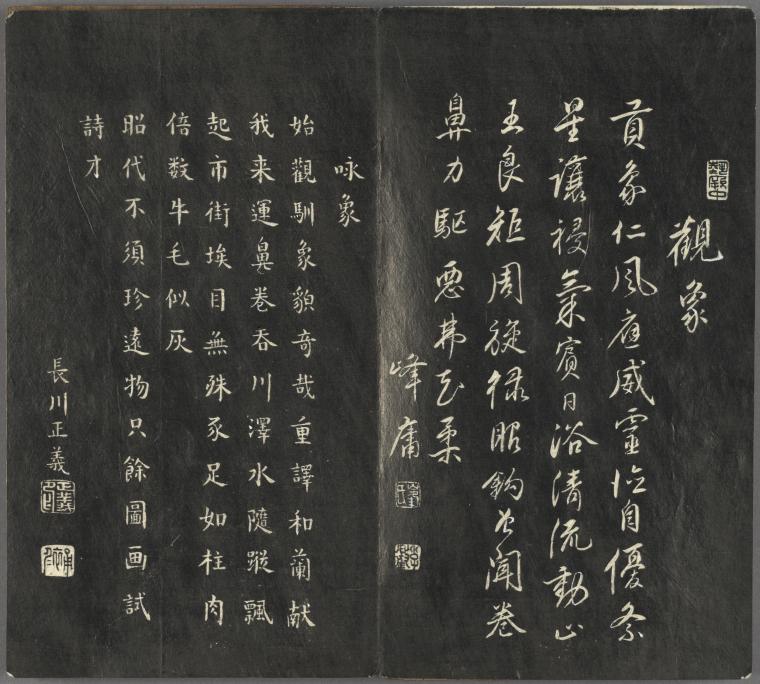 觀象
貢象仁風應威靈位自優祭
星禳祲氣賓日浴清流動止
王良矩周旋昭鈎曽聞卷
鼻力駆惡弗知柔
峰庸
咏象
始觀馴象貌奇哉重譯和蘭献
我来運鼻卷吞川澤水隨蹤飄
起市街埃目無殊豕足如柱肉
倍数牛毛似灰
昭代不須珍遠物只餘圖画試
詩才
長川正義